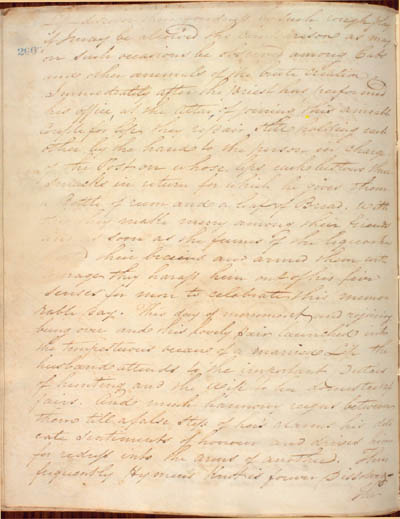 if I may be allowed the comparison as may
on such occasions be observed among Cats
and other animals of the brute Creation
Immediately after the Priest has performed
his office at the altar of joining this amiable
Couple for life they repair, still holding each
other by the hand to the person in charge
of the Post on whose lips each bestows three
smacks in return for which he gives them
a Bottle of rum and a loaf of Bread. With
make merry among their friends
soon as the fumes of the liquor
their brains and armed them with
courage they harass him out of his five
senses for more to celebrate this memo
rable day. This day of merriment and rejoicing
being over and this lovely pair launched into
the tempestuous ocean of a married Life the
husband attends to the important Duties
of hunting and the Wife to her domestic af
fairs. And much harmony reigns between
them till a false step of hers alarms his deli
cate sentiments of honour and drives him
for redress into the arms of another. Thus
frequently Hymens knot is forever Dissolved
The